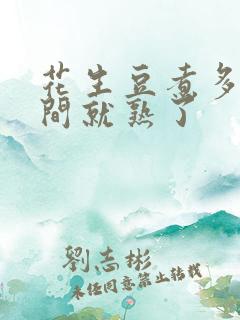 花生豆煮多
間就熟了
劉志彬
未经同意禁止转载